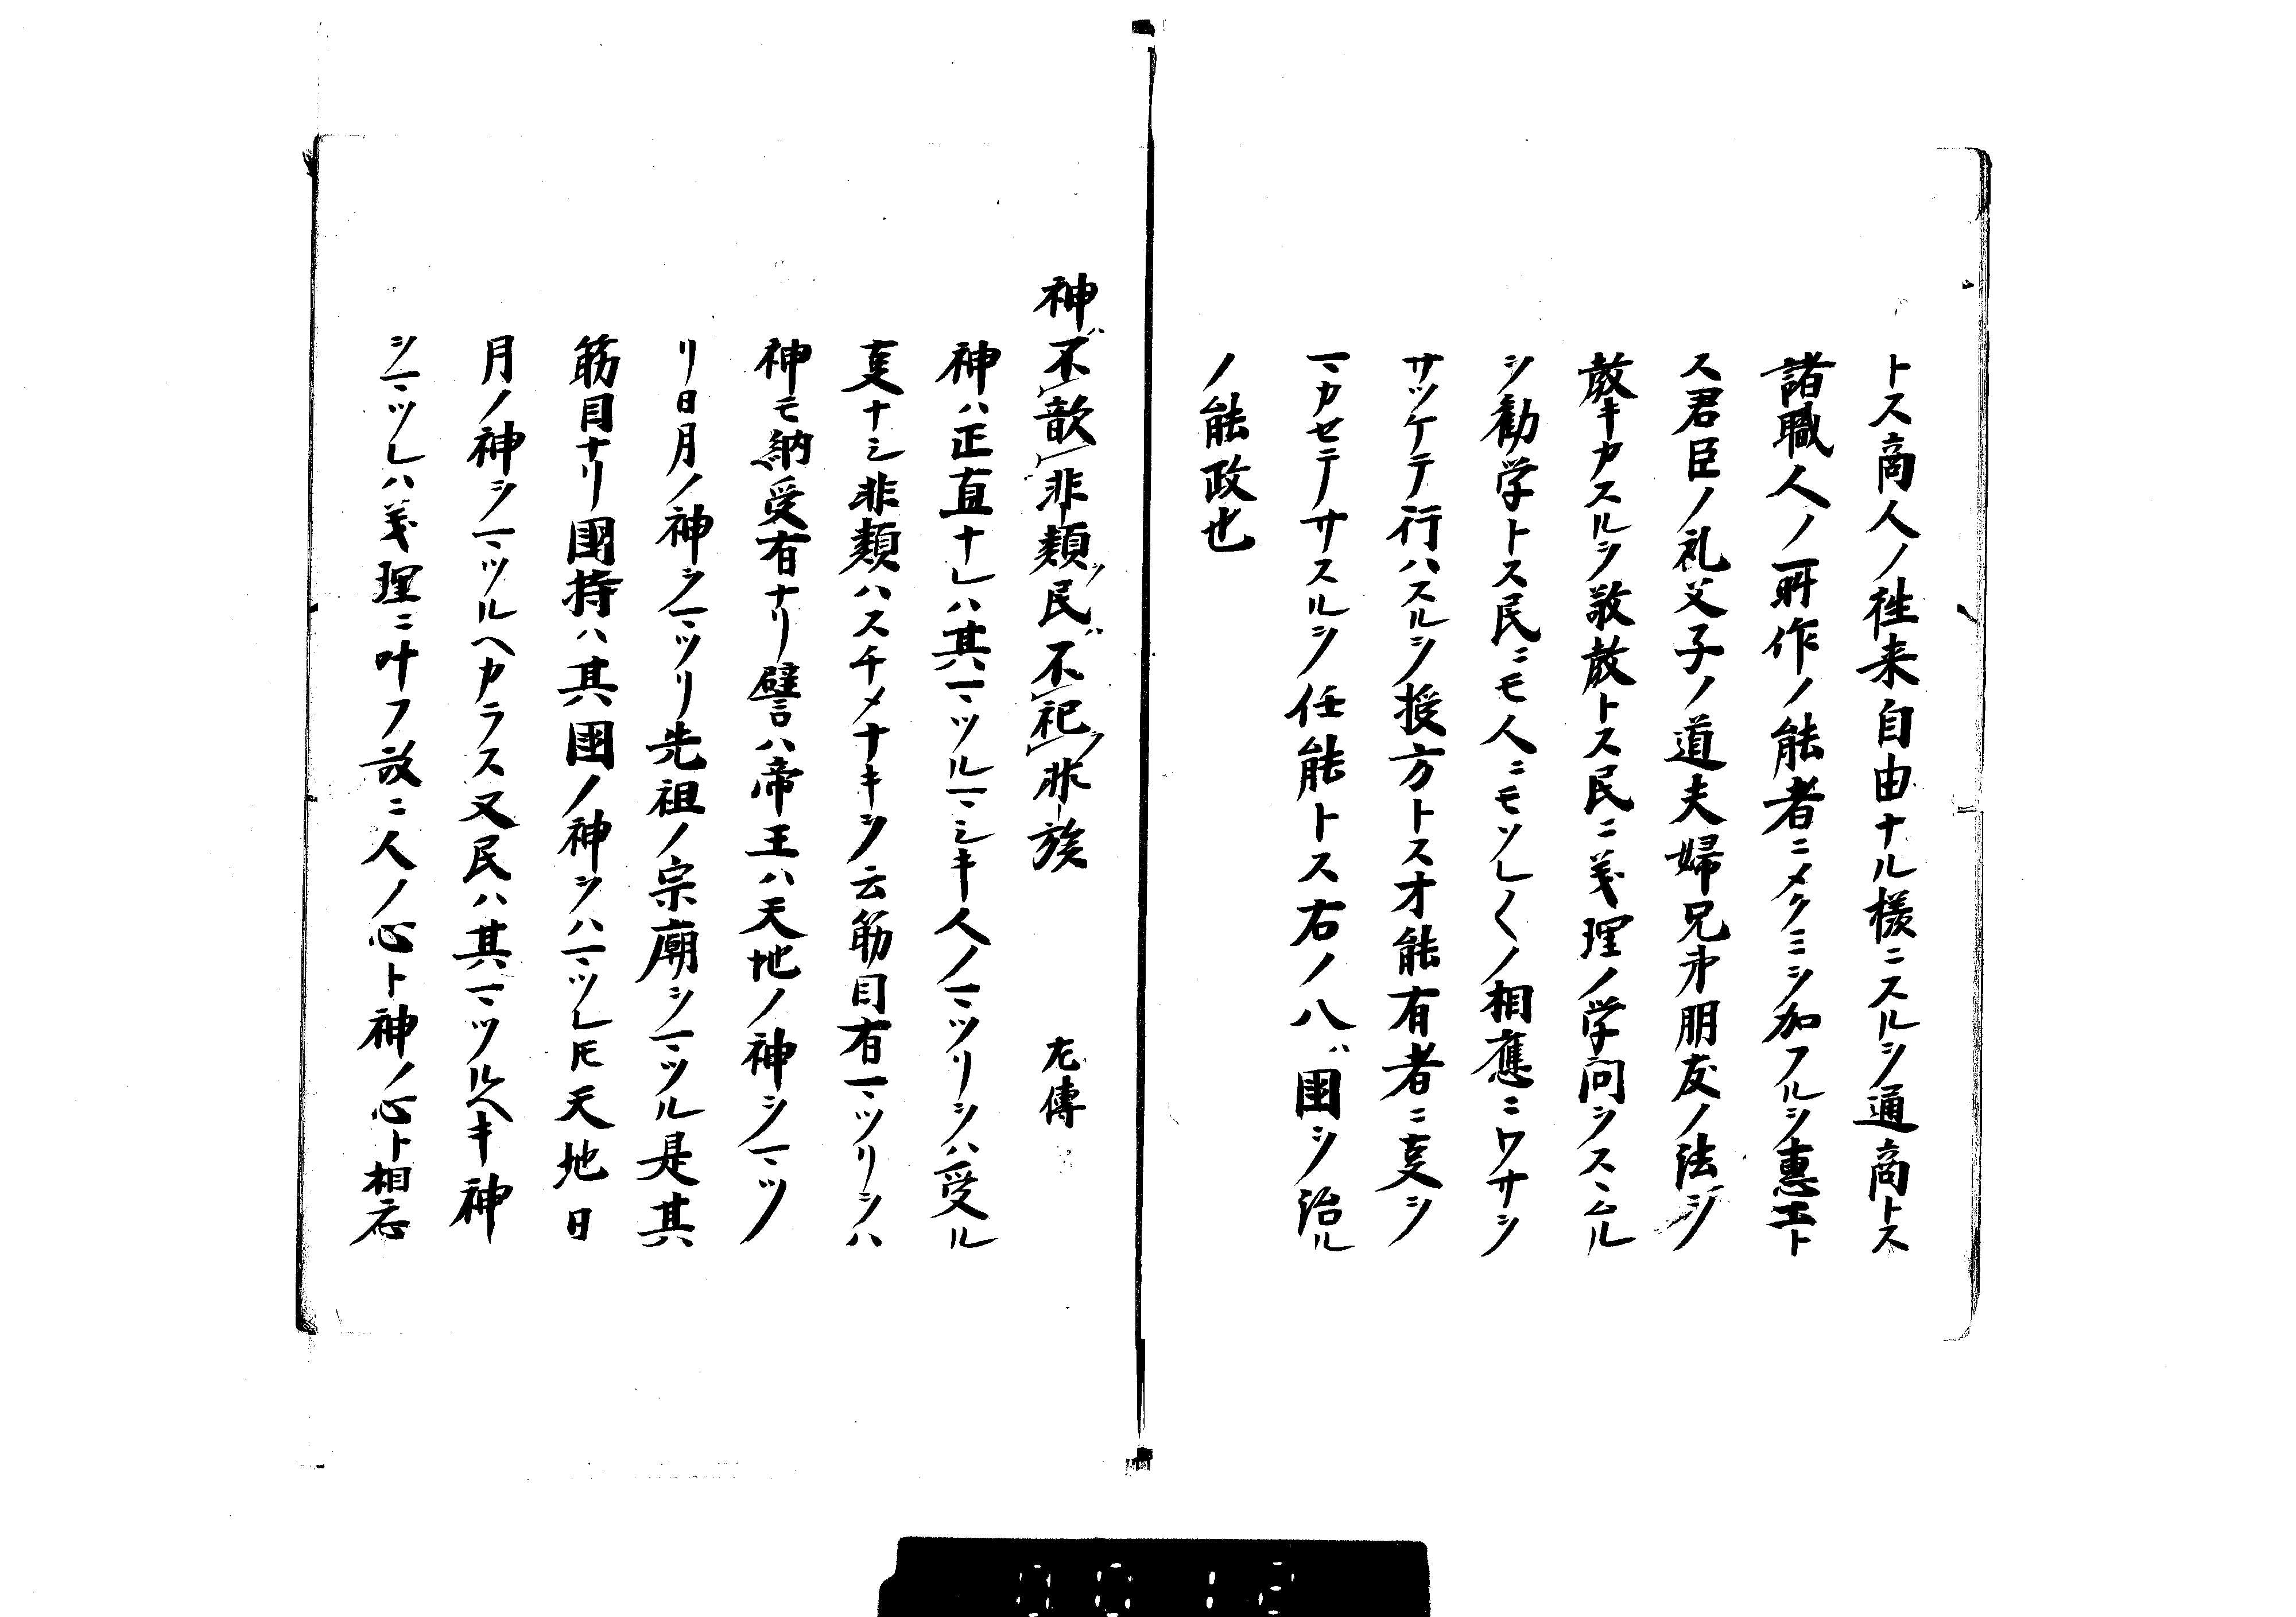 トス商人ノ徃来自由ナル様ニスルヲ通商トス
諸職人ノ所作ノ能者ニメクミヲ加フルヲ惠工ト
ス君臣ノ礼父子ノ道夫婦兄弟朋友ノ法ヲ
教キカスルヲ敬教トス民ニ義理ノ学問ヲスヽムル
ヲ勧学トス民ニモ人ニモソレ〱ノ相應ニワサヲ
サツケテ行ハスルヲ授方トス才能有者ニ叓ヲ
マカセテサスルヲ任能トス右ノ八ハ国ヲ治ル
ノ能政也
神ハ不歆非類民ハ不祀非族 左傳
神ハ正直ナレハ其マツルマシキ人ノマツリヲハ受ル
叓ナシ非類ハスチメナキヲ云筋目有マツリヲハ
神モ納受有ナリ譬ハ帝王ハ天地ノ神ヲマツ
リ日月ノ神ヲマツリ先祖ノ宗廟ヲマツル是其
筋目ナリ國持ハ其國ノ神ヲハマツレ𪜈天地日
月ノ神ヲマツルヘカラス又民ハ其マツルヘキ神
ヲマツレハ義理ニ叶フ故ニ人ノ心ト神ノ心ト相応